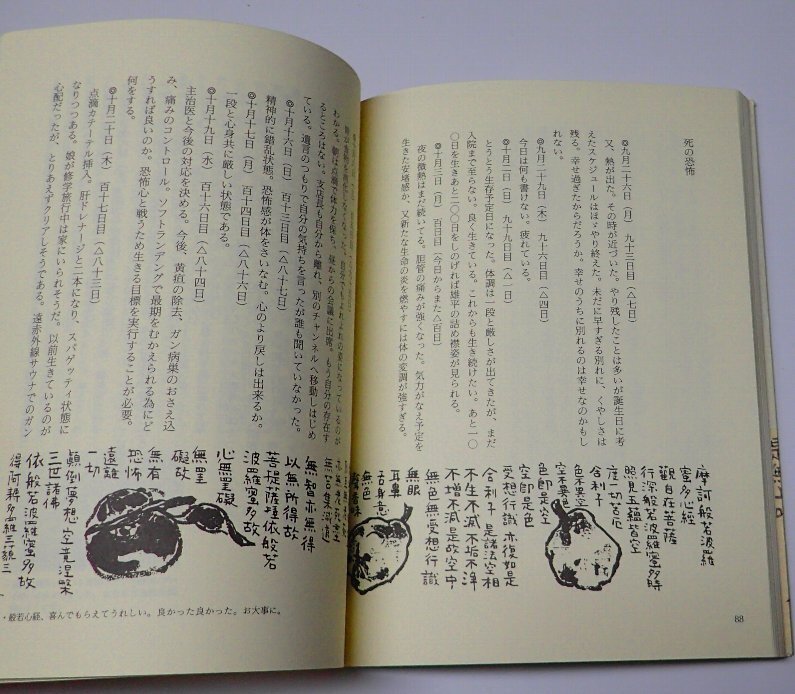 死の恐怖
◎九月二十六日（月）　九十三日目（△七日）
又、熱が出た。その時が近づいた。やり残したことは多いが誕生日に考
えたスケジュールはほゞやり終えた。未だに早すぎる別れに、くやしさは
残る。幸せ過ぎたからだろうか。幸せのうちに別れるのは幸せなのかもし
れない。
◎九月二十九日（木）　九十六日目（△四日）
今日は何も書けない。疲れている。
◎十月二日（日）　九十九日目（△一日）
とうとう生存予定日になった。体調は一段と厳しさが出てきたが、まだ
入院まで至らない。良く生きている。これからも生き続けたい。あと一〇
〇日を生きあと二〇〇日をしのげれば雄平の詰め襟姿が見られる。
◎十月三日（月）　百日目（今日からまた△百日）
夜の微熱はまだ続いてる。胆管の痛みが強くなった。気力がなえ予定を
生きた安堵感か、又新たな生命の炎を燃やすには体の変調が強すぎる。
摩訶般若波羅
蜜多心経
観自在菩薩
行深般若波羅蜜多時
照見五蘊皆空
度一切苦厄
舎利子
色不異空
空不異色
色即是空
空即是色
受想行識　亦復如是
舎利子　是諸法空相
不生不滅　不垢不浄
不増不減　是故空中
無色　無受想行識
無眼
耳鼻
舌身意
無色
声香味
88
わかる。朝は点滴で体力を保ち、昼からの会議に出席。もう自分の存在す
るところはない。支店長も自分から離れ、別のチャンネルへ移動しはじめ
ている。遺言のつもりで自分の気持ちを言ったが誰も聞いていなかった。
◎十月十六日（日）　百十三日目（△八十七日）
精神的に錯乱状態。恐怖感が体をさいなむ。心のより戻しは出来るか。
◎十月十七日（月）　百十四日目（△八十六日）
一段と心身共に厳しい状態である。
◎十月十九日（水）　百十六日目（△八十四日）
主治医と今後の対応を決める。今後、黄疸の除去、ガン病巣のおさえ込
み、痛みのコントロール。ソフトランディングで最期をむかえられる為にど
うすれば良いのか。恐怖心と戦うため生きる目標を実行することが必要。
何をする。
◎十月二十日（木）　百十七日目（△八十三日）
点滴カテーテル挿入。肝ドレナージと二本になり、スパゲッティ状態に
なりつつある。娘が修学旅行中は家にいられそうだ。以前生きているのが
心配だったが、とりあえずクリアしそうである。遠赤外線サウナでのガン
無苦集滅道
無智亦無得
以無所得故
菩提薩埵依般若
波羅蜜多故
心無罣礙
無罣
礙故
無有
恐怖
遠離
一切
顛倒夢想　空竟涅槃
三世諸佛
依般若波羅蜜多故
得阿耨多羅三藐三
・般若心経、喜んでもらえてうれしい。良かった良かった。お大事に。